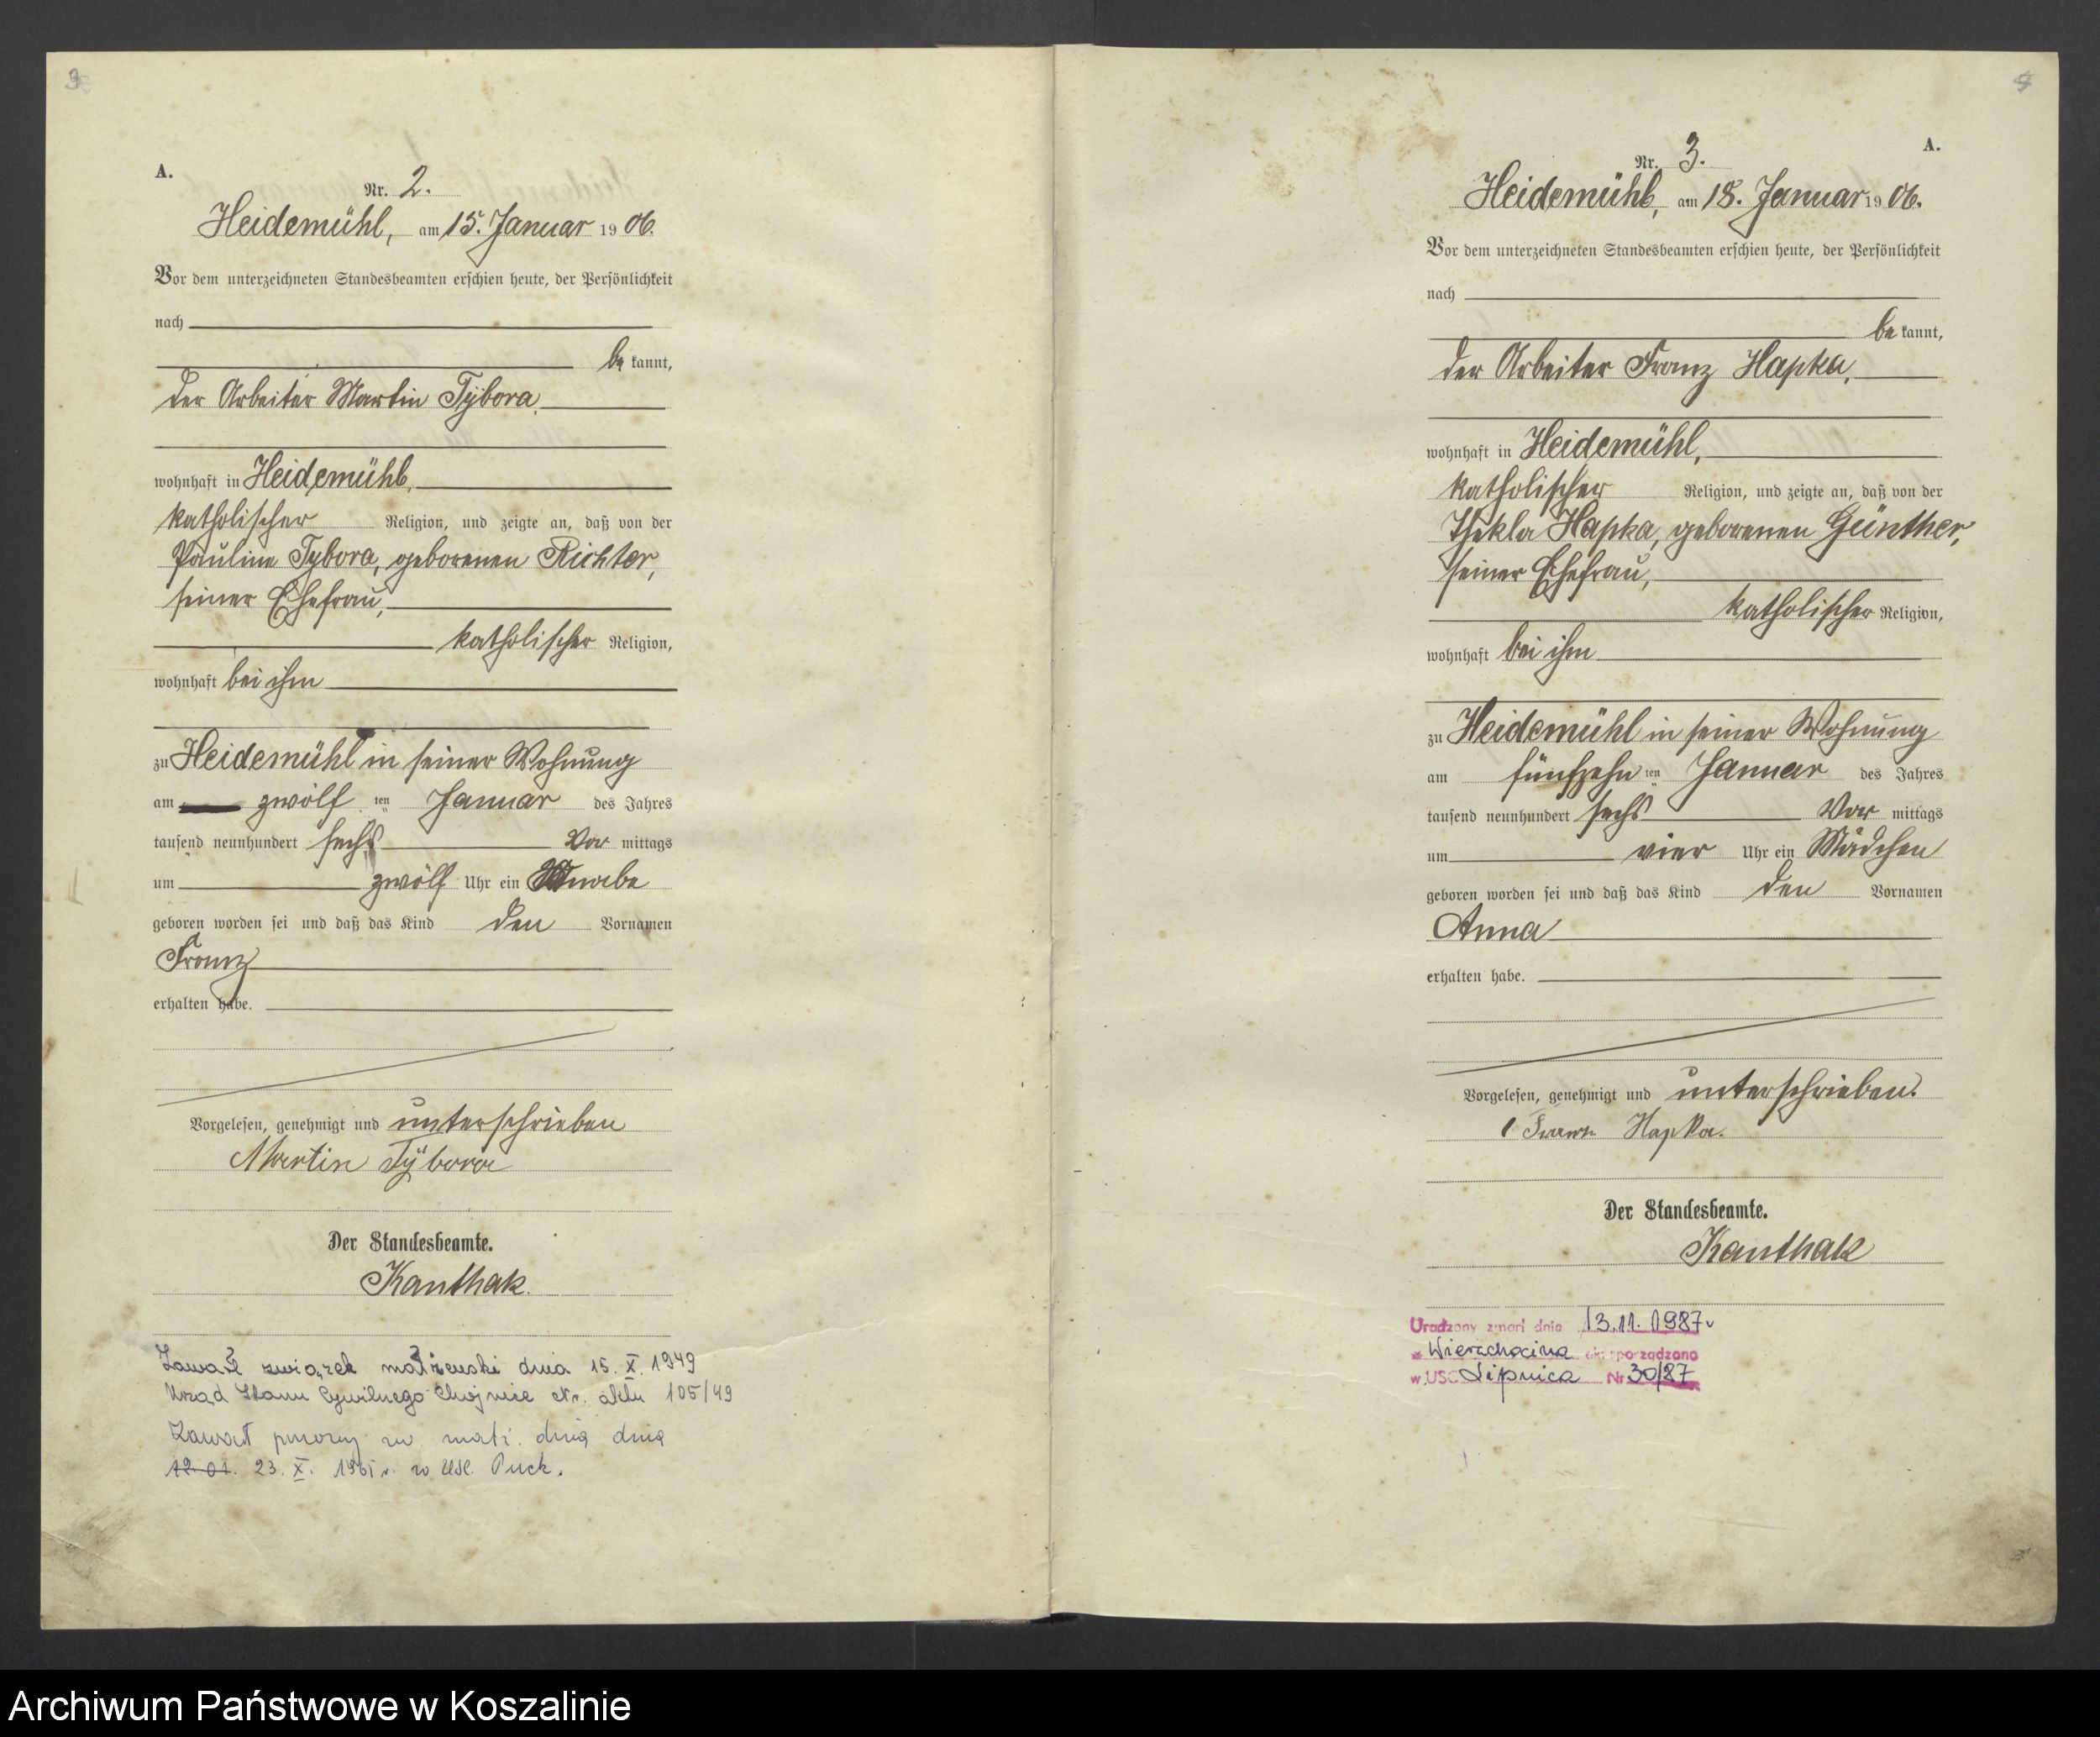 A.
Nr. 2.
Heidemühl, am 15. Januar 1906.
Vor dem unterzeichneten Standesbeamten erschien heute, der Persönlichkeit
nach
be kannt,
der Arbeiter Martin Tÿbora,
wohnhaft in Heidemühl,
katholischer Religion, und zeigte an, daß von der
Pauline Tybora, geborenen Richter,
seiner Ehefrau,
katholischer Religion,
wohnhaft bei ihm
zu Heidemühl in seiner Wohnung
am zwölf ten Januar des Jahres
tausend neunhundert sechs Vor mittags
um zwölf Uhr ein Knabe
geboren worden sei und daß das Kind den Vornamen
Franz
erhalten habe.
Vorgelesen, genehmigt und unterschrieben
Martin Tÿbora
Der Standesbeamte.
Kanthak.
Zawarł związek małżeński dnia 15. X. 1949
Urząd Stanu Cywilnego Chojnice Nr. aktu 105/49
Zawarł ponowny zw małż. dnia dnia
12.01. 23. X. w USC Puck.
A.
Nr. 3.
Heidemühl, am 18. Januar 1906.
Vor dem unterzeichneten Standesbeamten erschien heute, der Persönlichkeit
nach
be kannt,
der Arbeiter Franz Hapka,
wohnhaft in Heidemühl,
katholischer Religion, und zeigte an, daß von der
Thekla Hapka, geborenen Günther,
seiner Ehefrau,
katholischer Religion,
wohnhaft bei ihm
zu Heidemühl in seiner Wohnung
am fünfzehn ten Januar des Jahres
tausend neunhundert sechs Vor mittags
um vier Uhr ein Mädchen
geboren worden sei und daß das Kind den Vornamen
Anna
erhalten habe.
Vorgelesen, genehmigt und unterschrieben.
Franz Hapka.
Der Standesbeamte.
Kanthak
Urodzony zmarł dnia 13.11.1987r
w Wierzchocina akt sporządzono
w USC Lipnica Nr 30/87
Archiwum Państwowe w Koszalinie